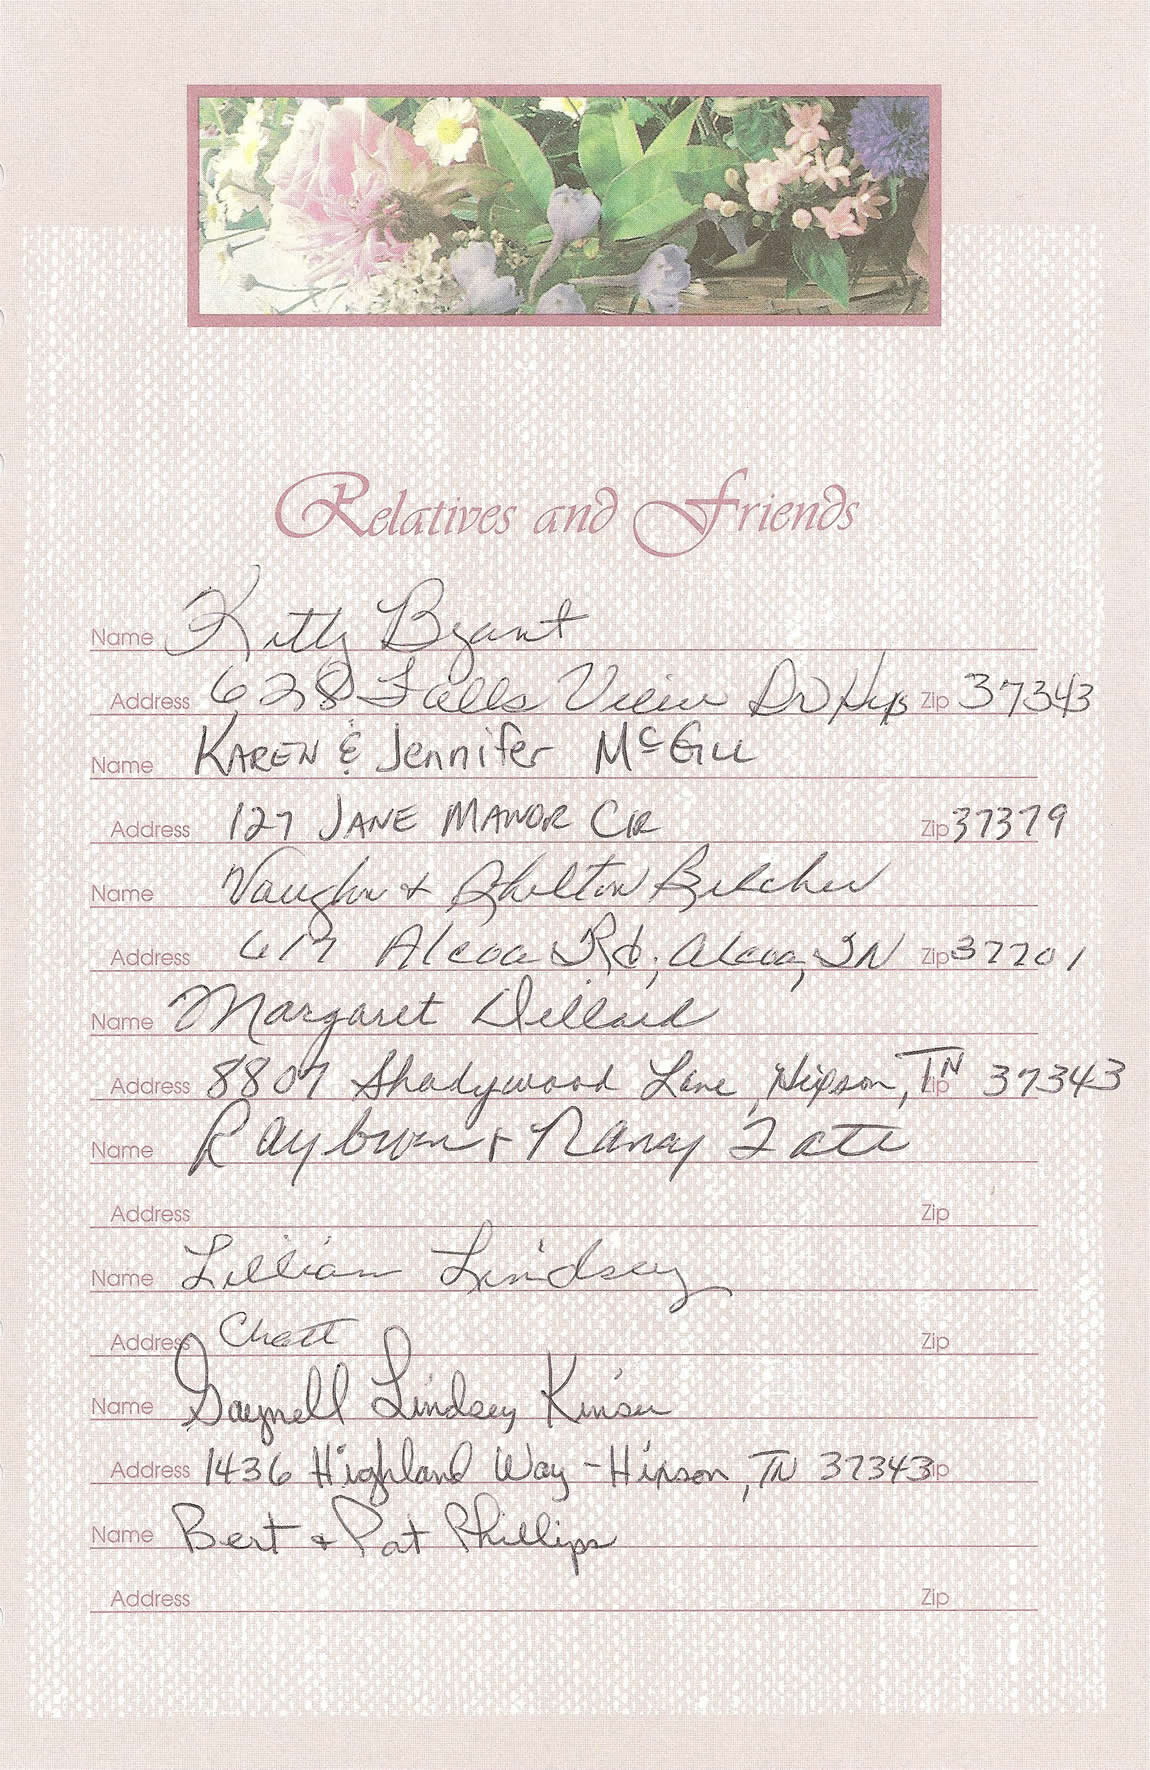 Relatives and Friends
Name Kitty Bryant
Address 628 Falls View Dr Hix Zip 37343
Name KAREN & Jennifer McGill
Address 127 JANE MANOR CIR Zip 37379
Name Vaughn & Shelton Belcher
Address 617 Alcoa Rd, Alcoa, TN Zip 37701
Name Margaret Dillard
Address 8807 Shadywood Lane, Hixson, TN Zip 37343
Name Rayburn & Nancy Tate
Address Zip
Name Lillian Lindsey
Address Chatt Zip
Name Gaynell Lindsey Kinser
Address 1436 Highland Way - Hixson, TN 37343 Zip
Name Bert & Pat Phillips
Address Zip